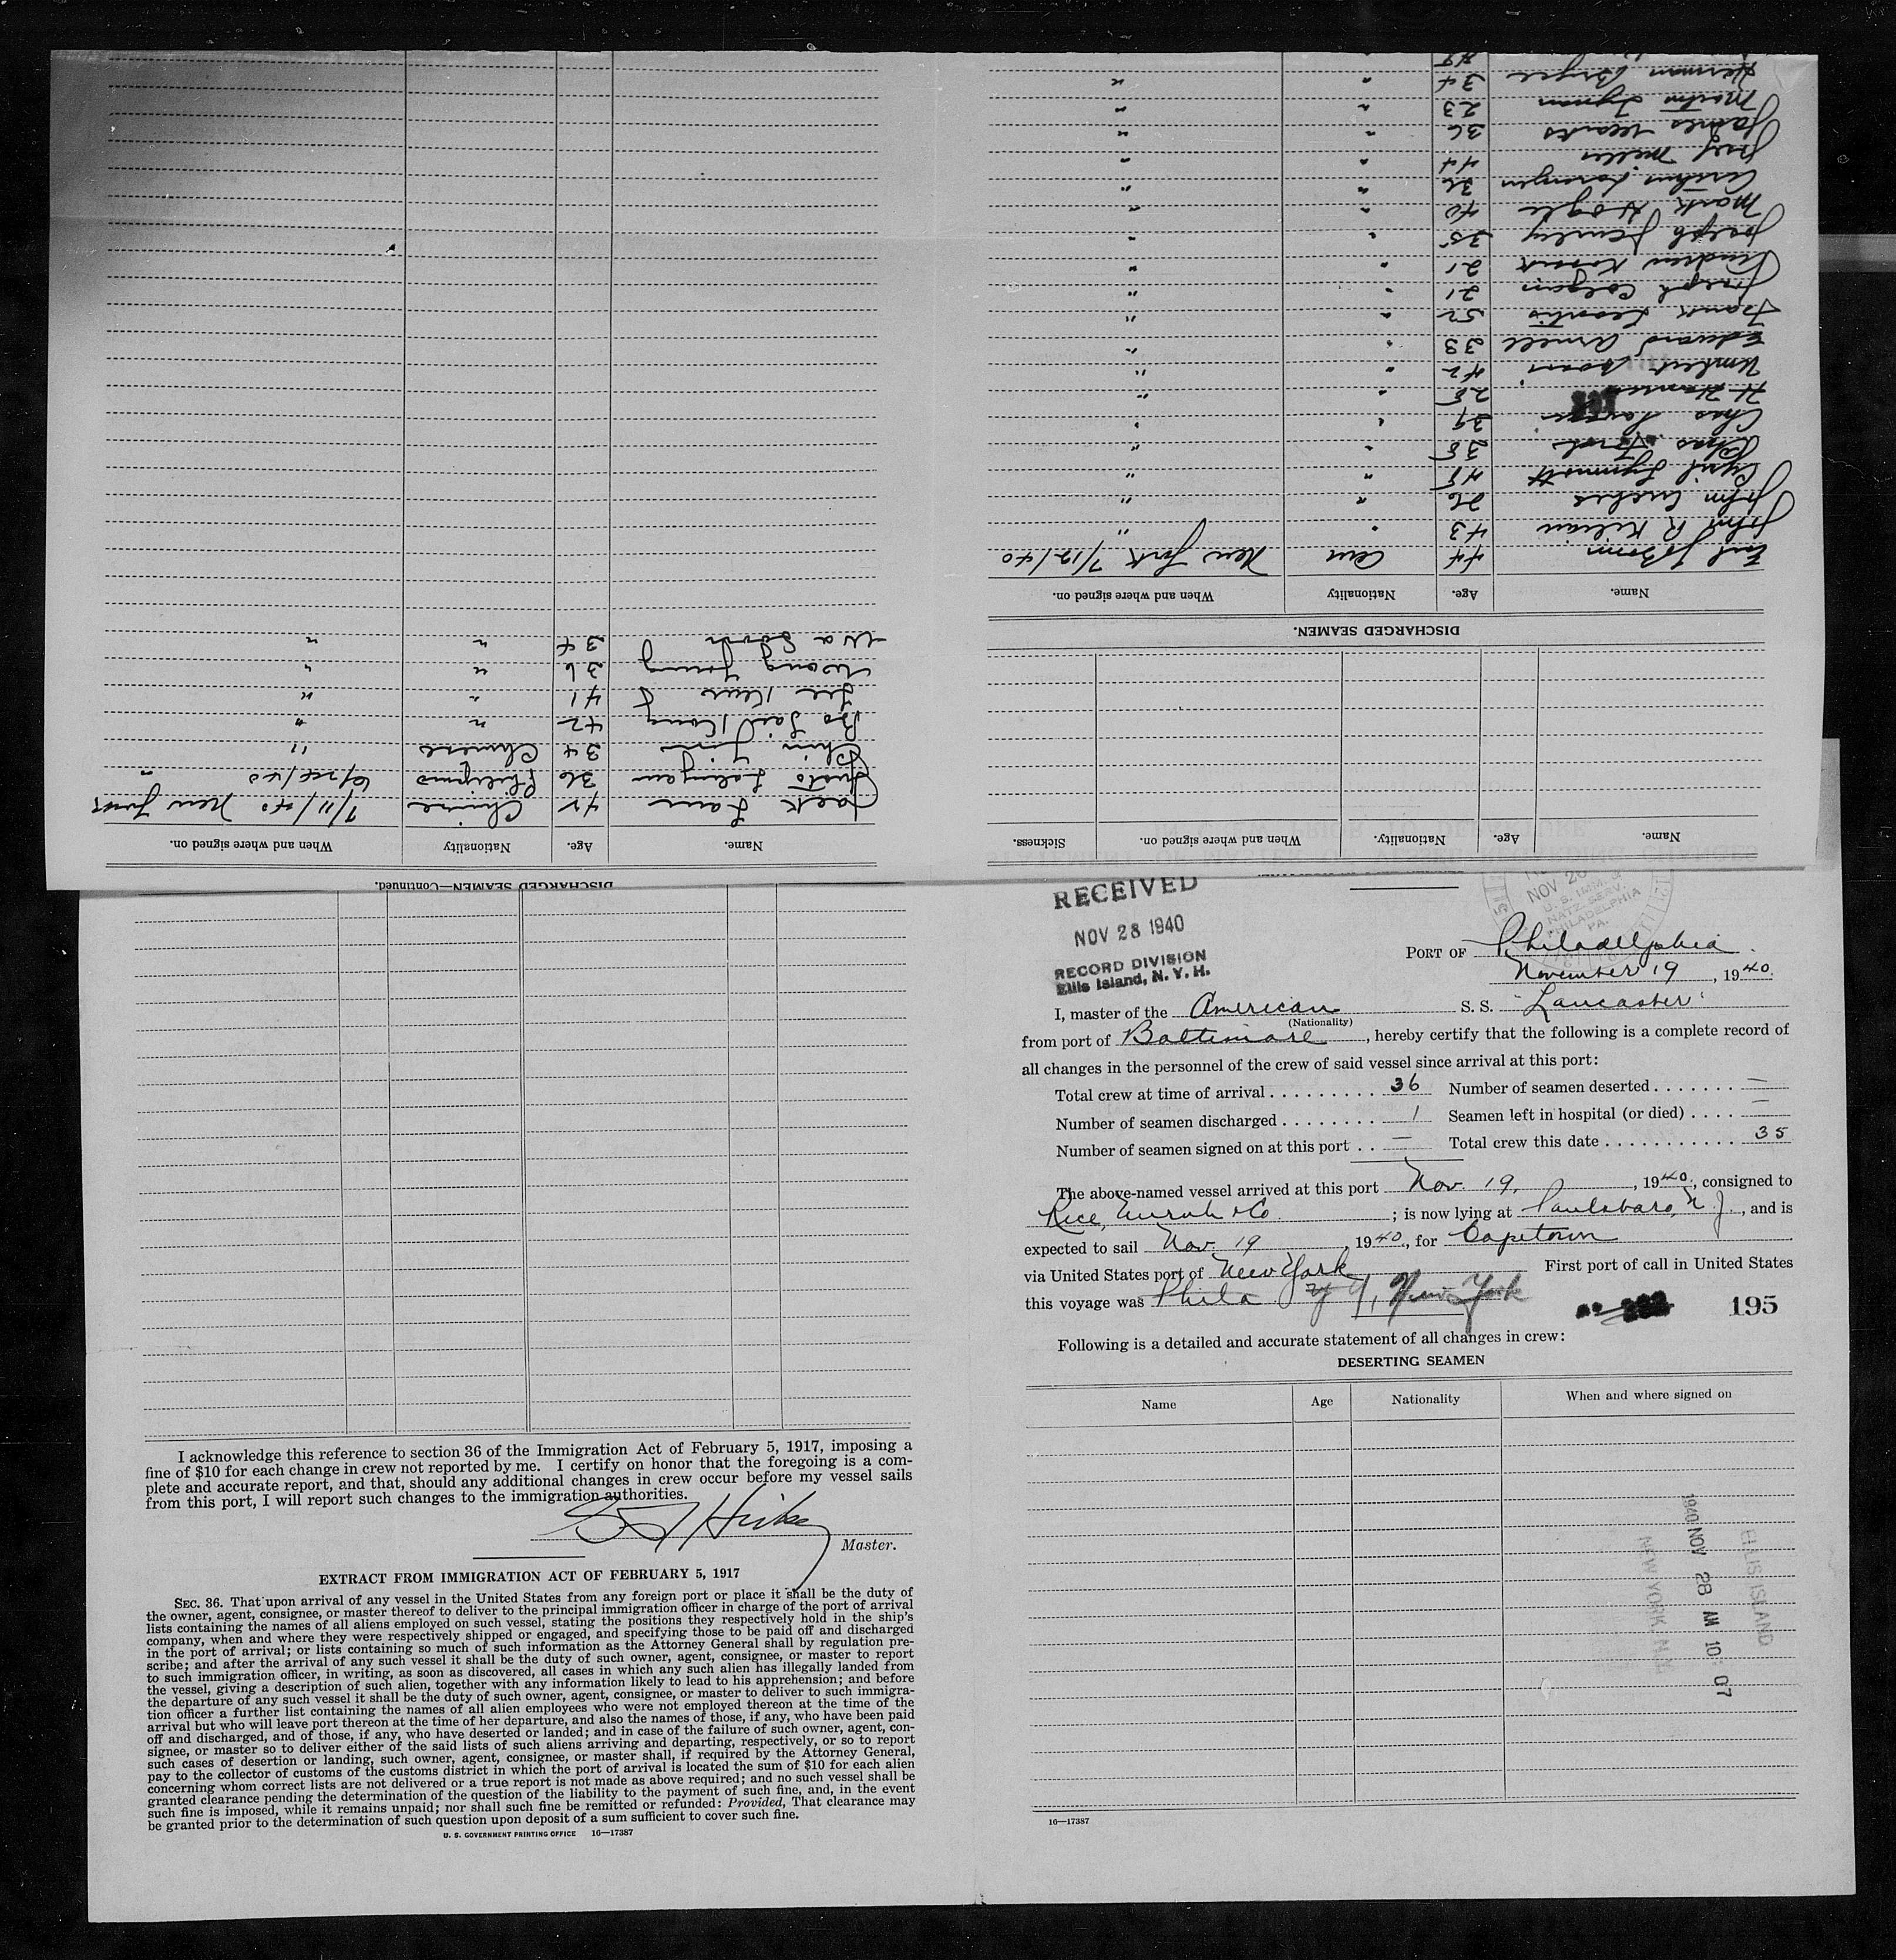 DISCHARGED SEAMEN—Continued.
RECEIVED
NOV 28 1940
RECORD DIVISION
Ellis Island, N. Y. H.
NOV 20
U. S. IMM. &
NATZ. SERV.
PHILADELPHIA
PA.
PORT OF Philadelphia
November 19, 1940.
I, master of the American S. S. "Lancaster"
(Nationality)
from port of Baltimore, hereby certify that the following is a complete record of
all changes in the personnel of the crew of said vessel since arrival at this port:
Total crew at time of arrival . . . . . . . . . . 36 Number of seamen deserted . . . . . . . —
Number of seamen discharged . . . . . . . . 1 Seamen left in hospital (or died) . . . . —
Number of seamen signed on at this port . . — Total crew this date . . . . . . . . . . . 35
The above-named vessel arrived at this port Nov. 19, 1940, consigned to
Rice, & Co. ; is now lying at Paulsboro, N. J., and is
expected to sail Nov. 19 1940, for Capetown
via United States port of New York First port of call in United States
this voyage was Phila New York
195
Following is a detailed and accurate statement of all changes in crew:
DESERTING SEAMEN
Name Age Nationality When and where signed on
ELLIS ISLAND
1940 NOV 28 AM 10 07
NEW YORK
16—17387
I acknowledge this reference to section 36 of the Immigration Act of February 5, 1917, imposing a
fine of $10 for each change in crew not reported by me. I certify on honor that the foregoing is a com-
plete and accurate report, and that, should any additional changes in crew occur before my vessel sails
from this port, I will report such changes to the immigration authorities.
Master.
EXTRACT FROM IMMIGRATION ACT OF FEBRUARY 5, 1917
SEC. 36. That upon arrival of any vessel in the United States from any foreign port or place it shall be the duty of
the owner, agent, consignee, or master thereof to deliver to the principal immigration officer in charge of the port of arrival
lists containing the names of all aliens employed on such vessel, stating the positions they respectively hold in the ship's
company, when and where they were respectively shipped or engaged, and specifying those to be paid off and discharged
in the port of arrival; or lists containing so much of such information as the Attorney General shall by regulation pre-
scribe; and after the arrival of any such vessel it shall be the duty of such owner, agent, consignee, or master to report
to such immigration officer, in writing, as soon as discovered, all cases in which any such alien has illegally landed from
the vessel, giving a description of such alien, together with any information likely to lead to his apprehension; and before
the departure of any such vessel it shall be the duty of such owner, agent, consignee, or master to deliver to such immigra-
tion officer a further list containing the names of all alien employees who were not employed thereon at the time of the
arrival but who will leave port thereon at the time of her departure, and also the names of those, if any, who have been paid
off and discharged, and of those, if any, who have deserted or landed; and in case of the failure of such owner, agent, con-
signee, or master so to deliver either of the said lists of such aliens arriving and departing, respectively, or so to report
such cases of desertion or landing, such owner, agent, consignee, or master shall, if required by the Attorney General,
pay to the collector of customs of the customs district in which the port of arrival is located the sum of $10 for each alien
concerning whom correct lists are not delivered or a true report is not made as above required; and no such vessel shall be
granted clearance pending the determination of the question of the liability to the payment of such fine, and, in the event
such fine is imposed, while it remains unpaid; nor shall such fine be remitted or refunded: Provided, That clearance may
be granted prior to the determination of such question upon deposit of a sum sufficient to cover such fine.
U. S. GOVERNMENT PRINTING OFFICE 16—17387
Name. Age. Nationality. When and where signed on. Sickness.
DISCHARGED SEAMEN.
Name. Age. Nationality When and where signed on.
Earl 44 Am New York 7/12/40
John R Kilian 43 " "
John 26 " "
Cyril 45 " "
Chas Ford 38 " "
Chas 39 " "
H 28 " "
Umbert 42 " "
Edward Arnell 38 " "
Frank 52 " "
Joseph Colgan 21 " "
Andrew 21 " "
Joseph 35 " "
Mark Hogle 40 " "
36 " "
Josef 44 " "
James 36 " "
Martin Tynan 23 " "
Herman Boyce 34 " "
Name. Age. Nationality When and where signed on.
Jack Lam 42 Chinese 7/11/40 New York
Justo 36 Philipino "
Chin 34 Chinese "
42 " "
Lee 41 " "
Wong Young 36 " "
34 " "